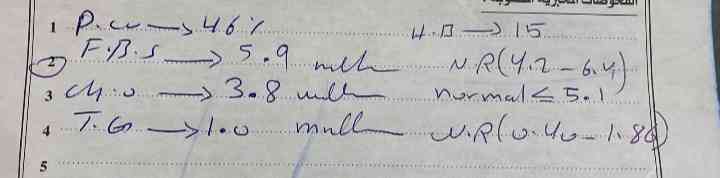 الفحوصات المختبرية المطلوبة :
1 P.cv → 46% H.B → 15
2 F.B.S → 5.9 mll N.R(4.2-6.4)
3 Ch.o → 3.8 mll normal ≤ 5.1
4 T.G → 1.0 mmll N.R(0.40-1.86)
5